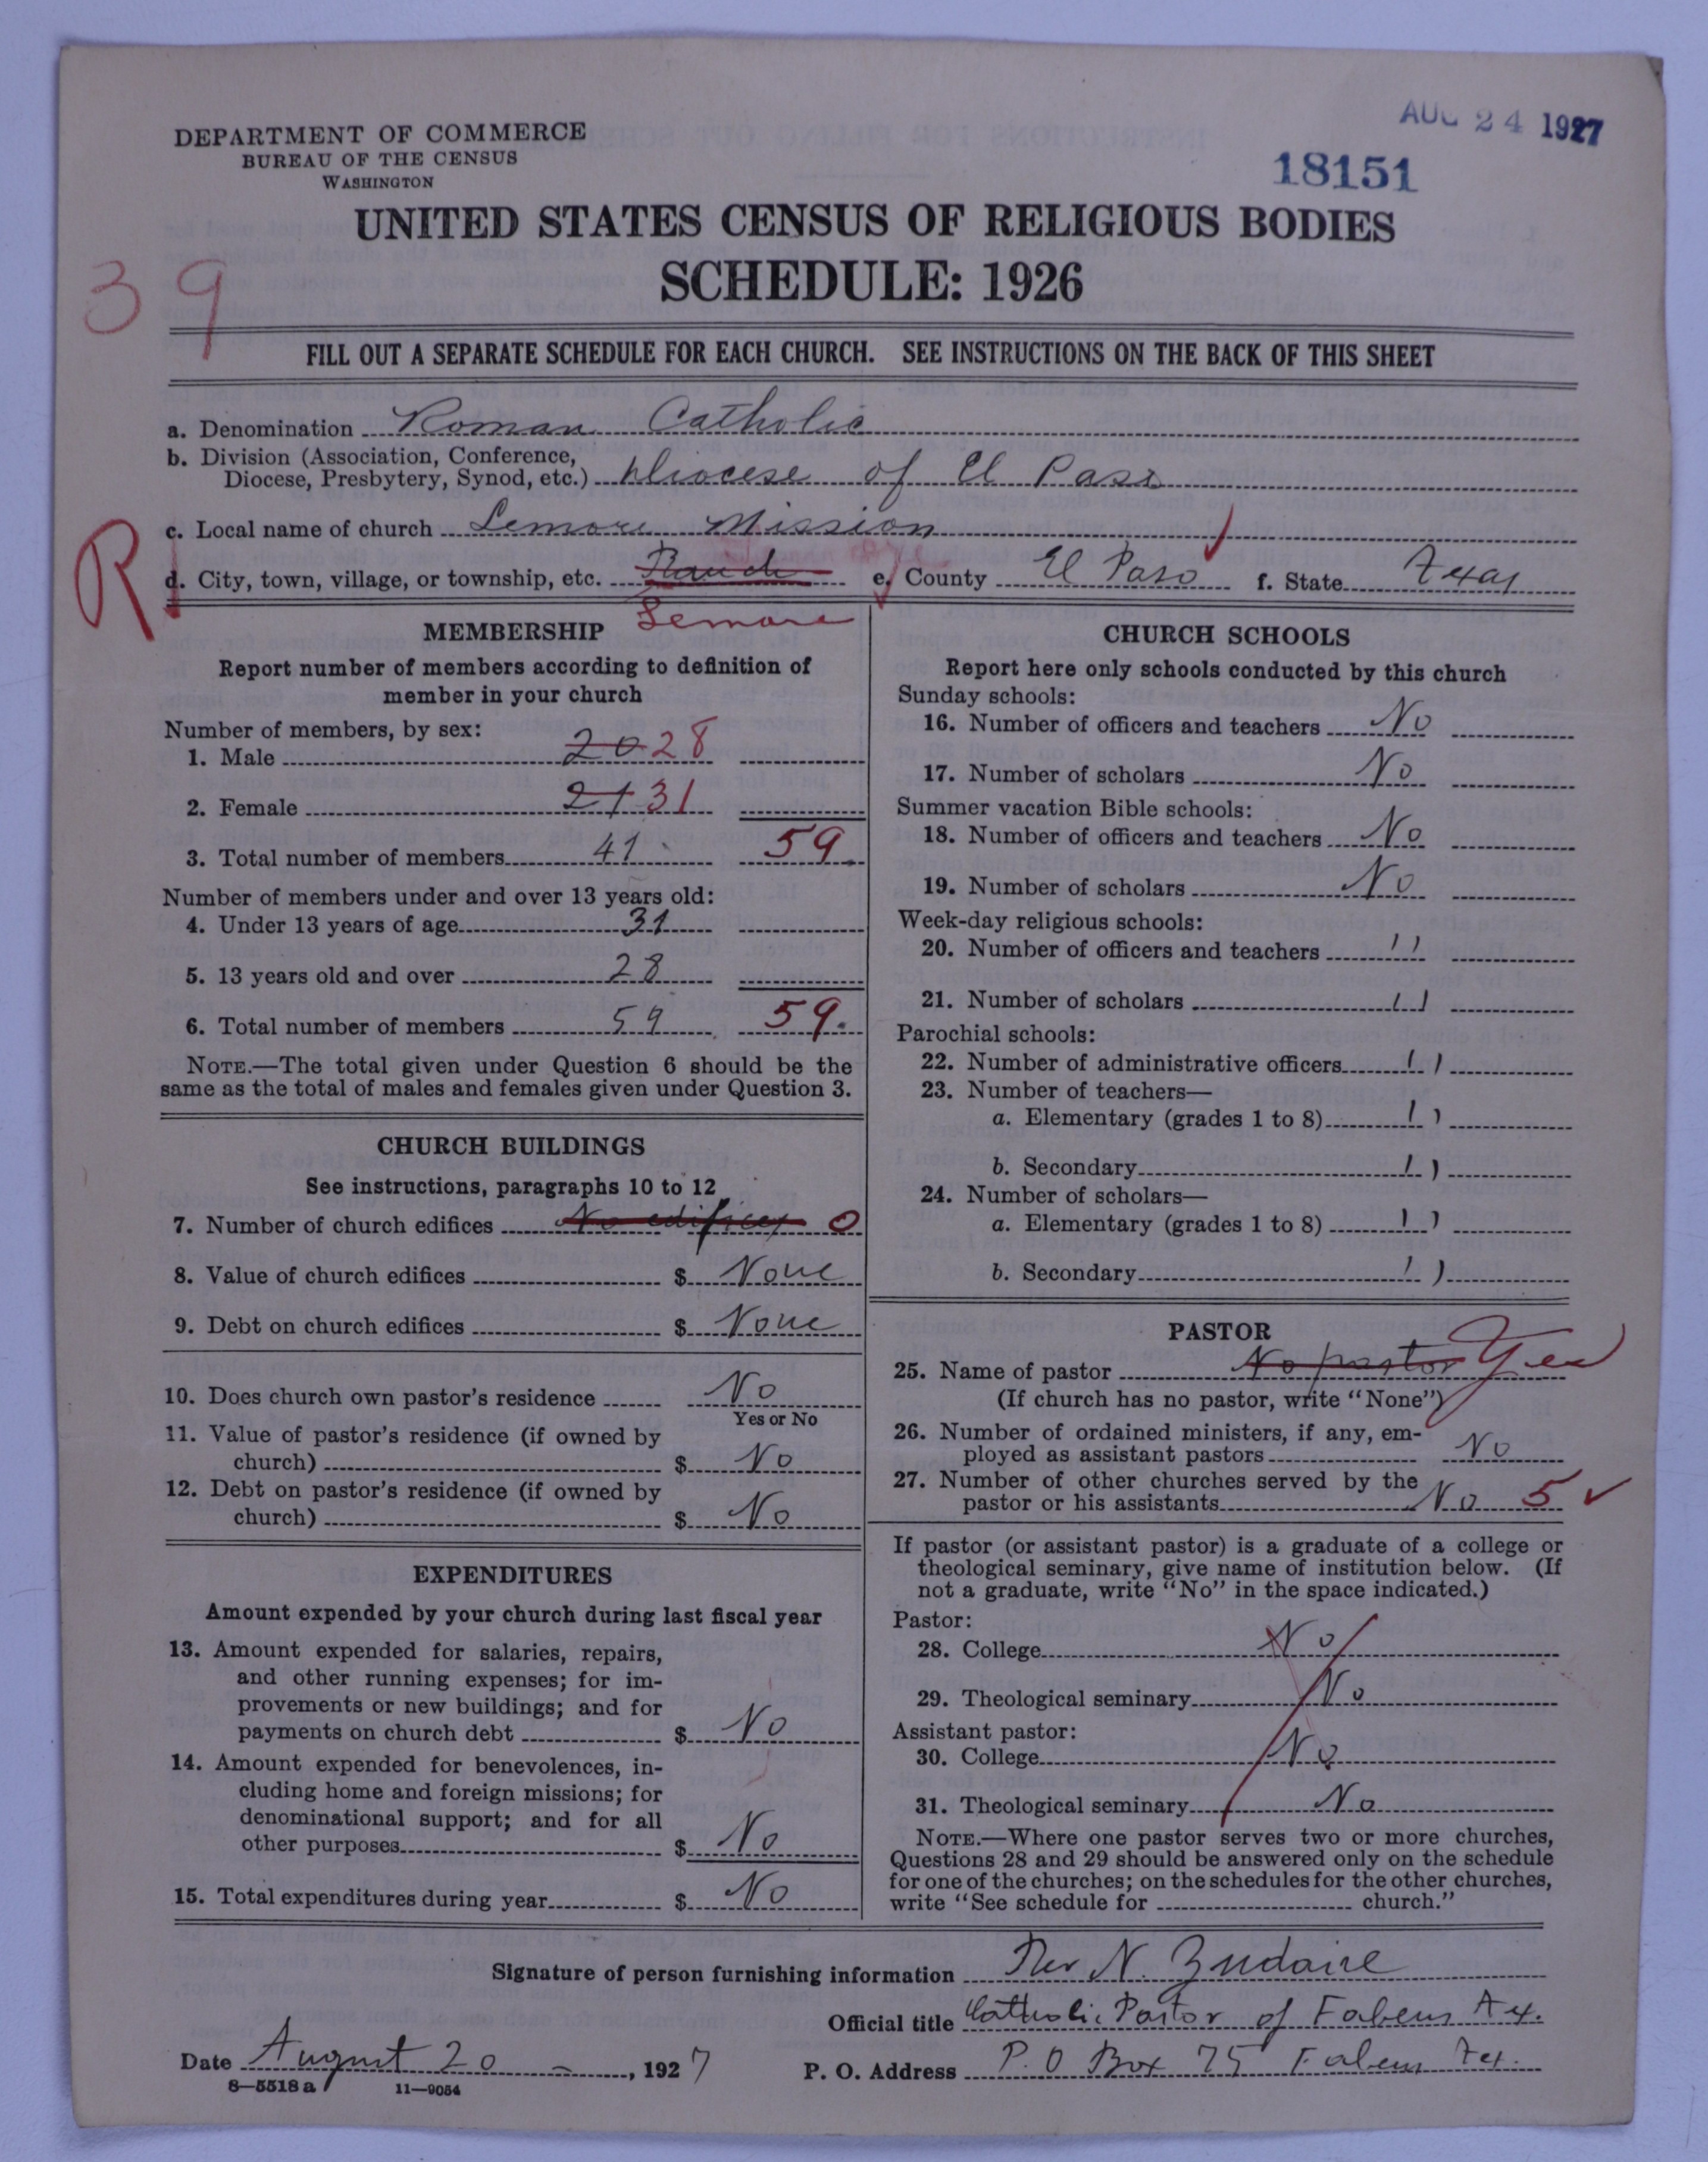 AUG 24 1927
DEPARTMENT OF COMMERCE
BUREAU OF THE CENSUS
WASHINGTON
18151
UNITED STATES CENSUS OF RELIGIOUS BODIES
SCHEDULE: 1926
39
FILL OUT A SEPARATE SCHEDULE FOR EACH CHURCH. SEE INSTRUCTIONS ON THE BACK OF THIS SHEET
a. Denomination Roman Catholic
b. Division (Association, Conference,
Diocese, Presbytery, Synod, etc.) Diocese of El Paso
c. Local name of church Lemore Mission
R
d. City, town, village, or township, etc. Ranch e. County El Paso f. State Texas
Lemore
MEMBERSHIP
Report number of members according to definition of
member in your church
Number of members, by sex:
1. Male 20 28
2. Female 21 31
3. Total number of members 41 59.
Number of members under and over 13 years old:
4. Under 13 years of age 31
5. 13 years old and over 28
6. Total number of members 59 59.
NOTE.—The total given under Question 6 should be the
same as the total of males and females given under Question 3.
CHURCH BUILDINGS
See instructions, paragraphs 10 to 12
7. Number of church edifices No edifices 0
8. Value of church edifices $ None
9. Debt on church edifices $ None
10. Does church own pastor's residence No
Yes or No
11. Value of pastor's residence (if owned by
church) $ No
12. Debt on pastor's residence (if owned by
church) $ No
EXPENDITURES
Amount expended by your church during last fiscal year
13. Amount expended for salaries, repairs,
and other running expenses; for im-
provements or new buildings; and for
payments on church debt $ No
14. Amount expended for benevolences, in-
cluding home and foreign missions; for
denominational support; and for all
other purposes $ No
15. Total expenditures during year $ No
CHURCH SCHOOLS
Report here only schools conducted by this church
Sunday schools:
16. Number of officers and teachers No
17. Number of scholars No
Summer vacation Bible schools:
18. Number of officers and teachers No
19. Number of scholars No
Week-day religious schools:
20. Number of officers and teachers ''
21. Number of scholars ''
Parochial schools:
22. Number of administrative officers ''
23. Number of teachers—
a. Elementary (grades 1 to 8) ''
b. Secondary ''
24. Number of scholars—
a. Elementary (grades 1 to 8) ''
b. Secondary ''
PASTOR
25. Name of pastor No pastor Yes
(If church has no pastor, write "None")
26. Number of ordained ministers, if any, em-
ployed as assistant pastors No
27. Number of other churches served by the
pastor or his assistants No 5 ✓
If pastor (or assistant pastor) is a graduate of a college or
theological seminary, give name of institution below. (If
not a graduate, write "No" in the space indicated.)
Pastor:
28. College No
29. Theological seminary No
Assistant pastor:
30. College No
31. Theological seminary No
NOTE.—Where one pastor serves two or more churches,
Questions 28 and 29 should be answered only on the schedule
for one of the churches; on the schedules for the other churches,
write "See schedule for church."
Signature of person furnishing information Rev N. Zudaire
Official title Catholic Pastor of Fabens Tx.
Date August 20 —, 1927 P. O. Address P.O Box 75 Fabens Tex.
8—5518 a 11—9054